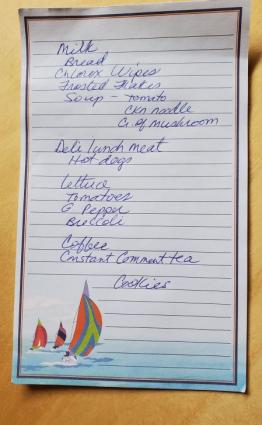 Milk
Bread
Clorox Wipes
Frosted Flakes
Soup - Tomato
Ckn noodle
Cr. of mushroom
Deli lunch meat
Hot dogs
Lettuce
Tomatoes
G. Pepper
Broccoli
Coffee
Constant Comment tea
Cookies